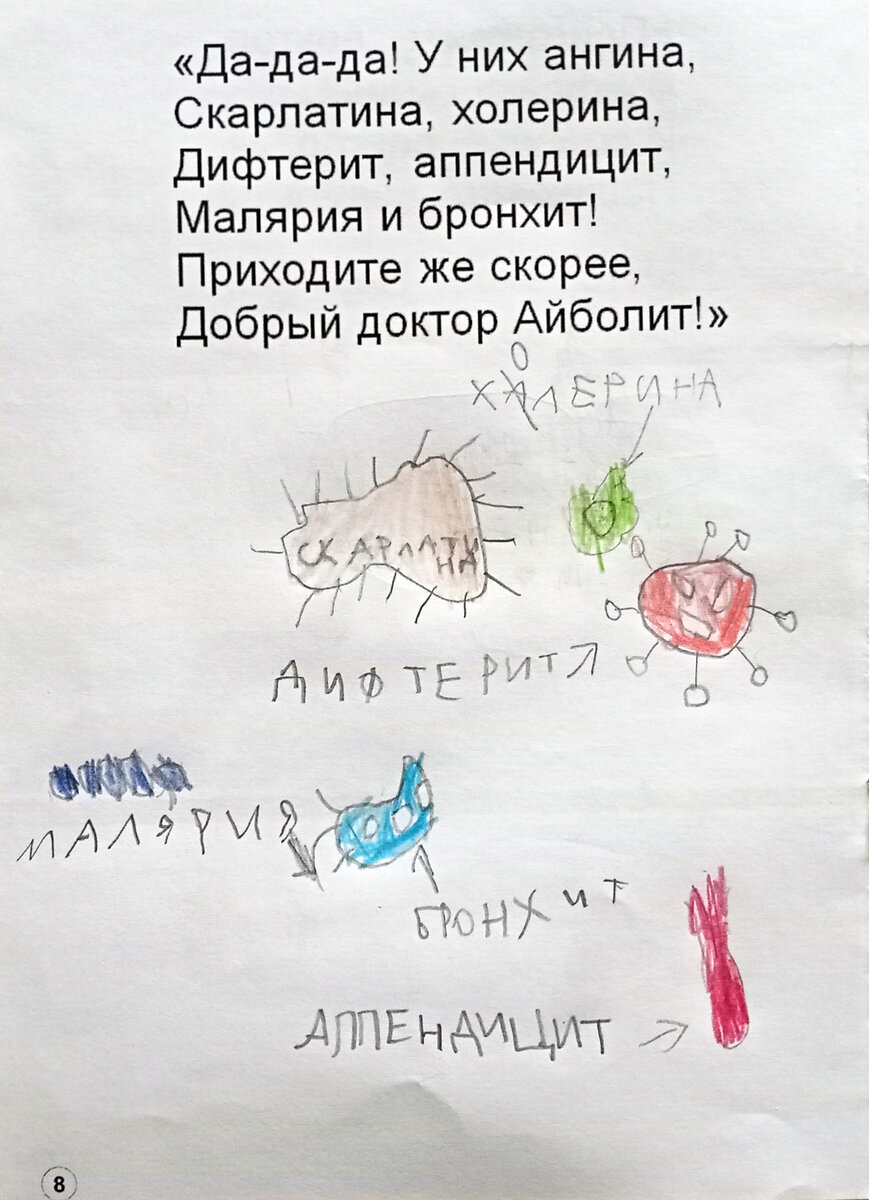 «Да-да-да! У них ангина,
Скарлатина, холерина,
Дифтерит, аппендицит,
Малярия и бронхит!
Приходите же скорее,
Добрый доктор Айболит!»
ХОЛЕРИНА
СКАРЛАТИНА
ДИФТЕРИТ
МАЛЯРИЯ
БРОНХИТ
АППЕНДИЦИТ
8